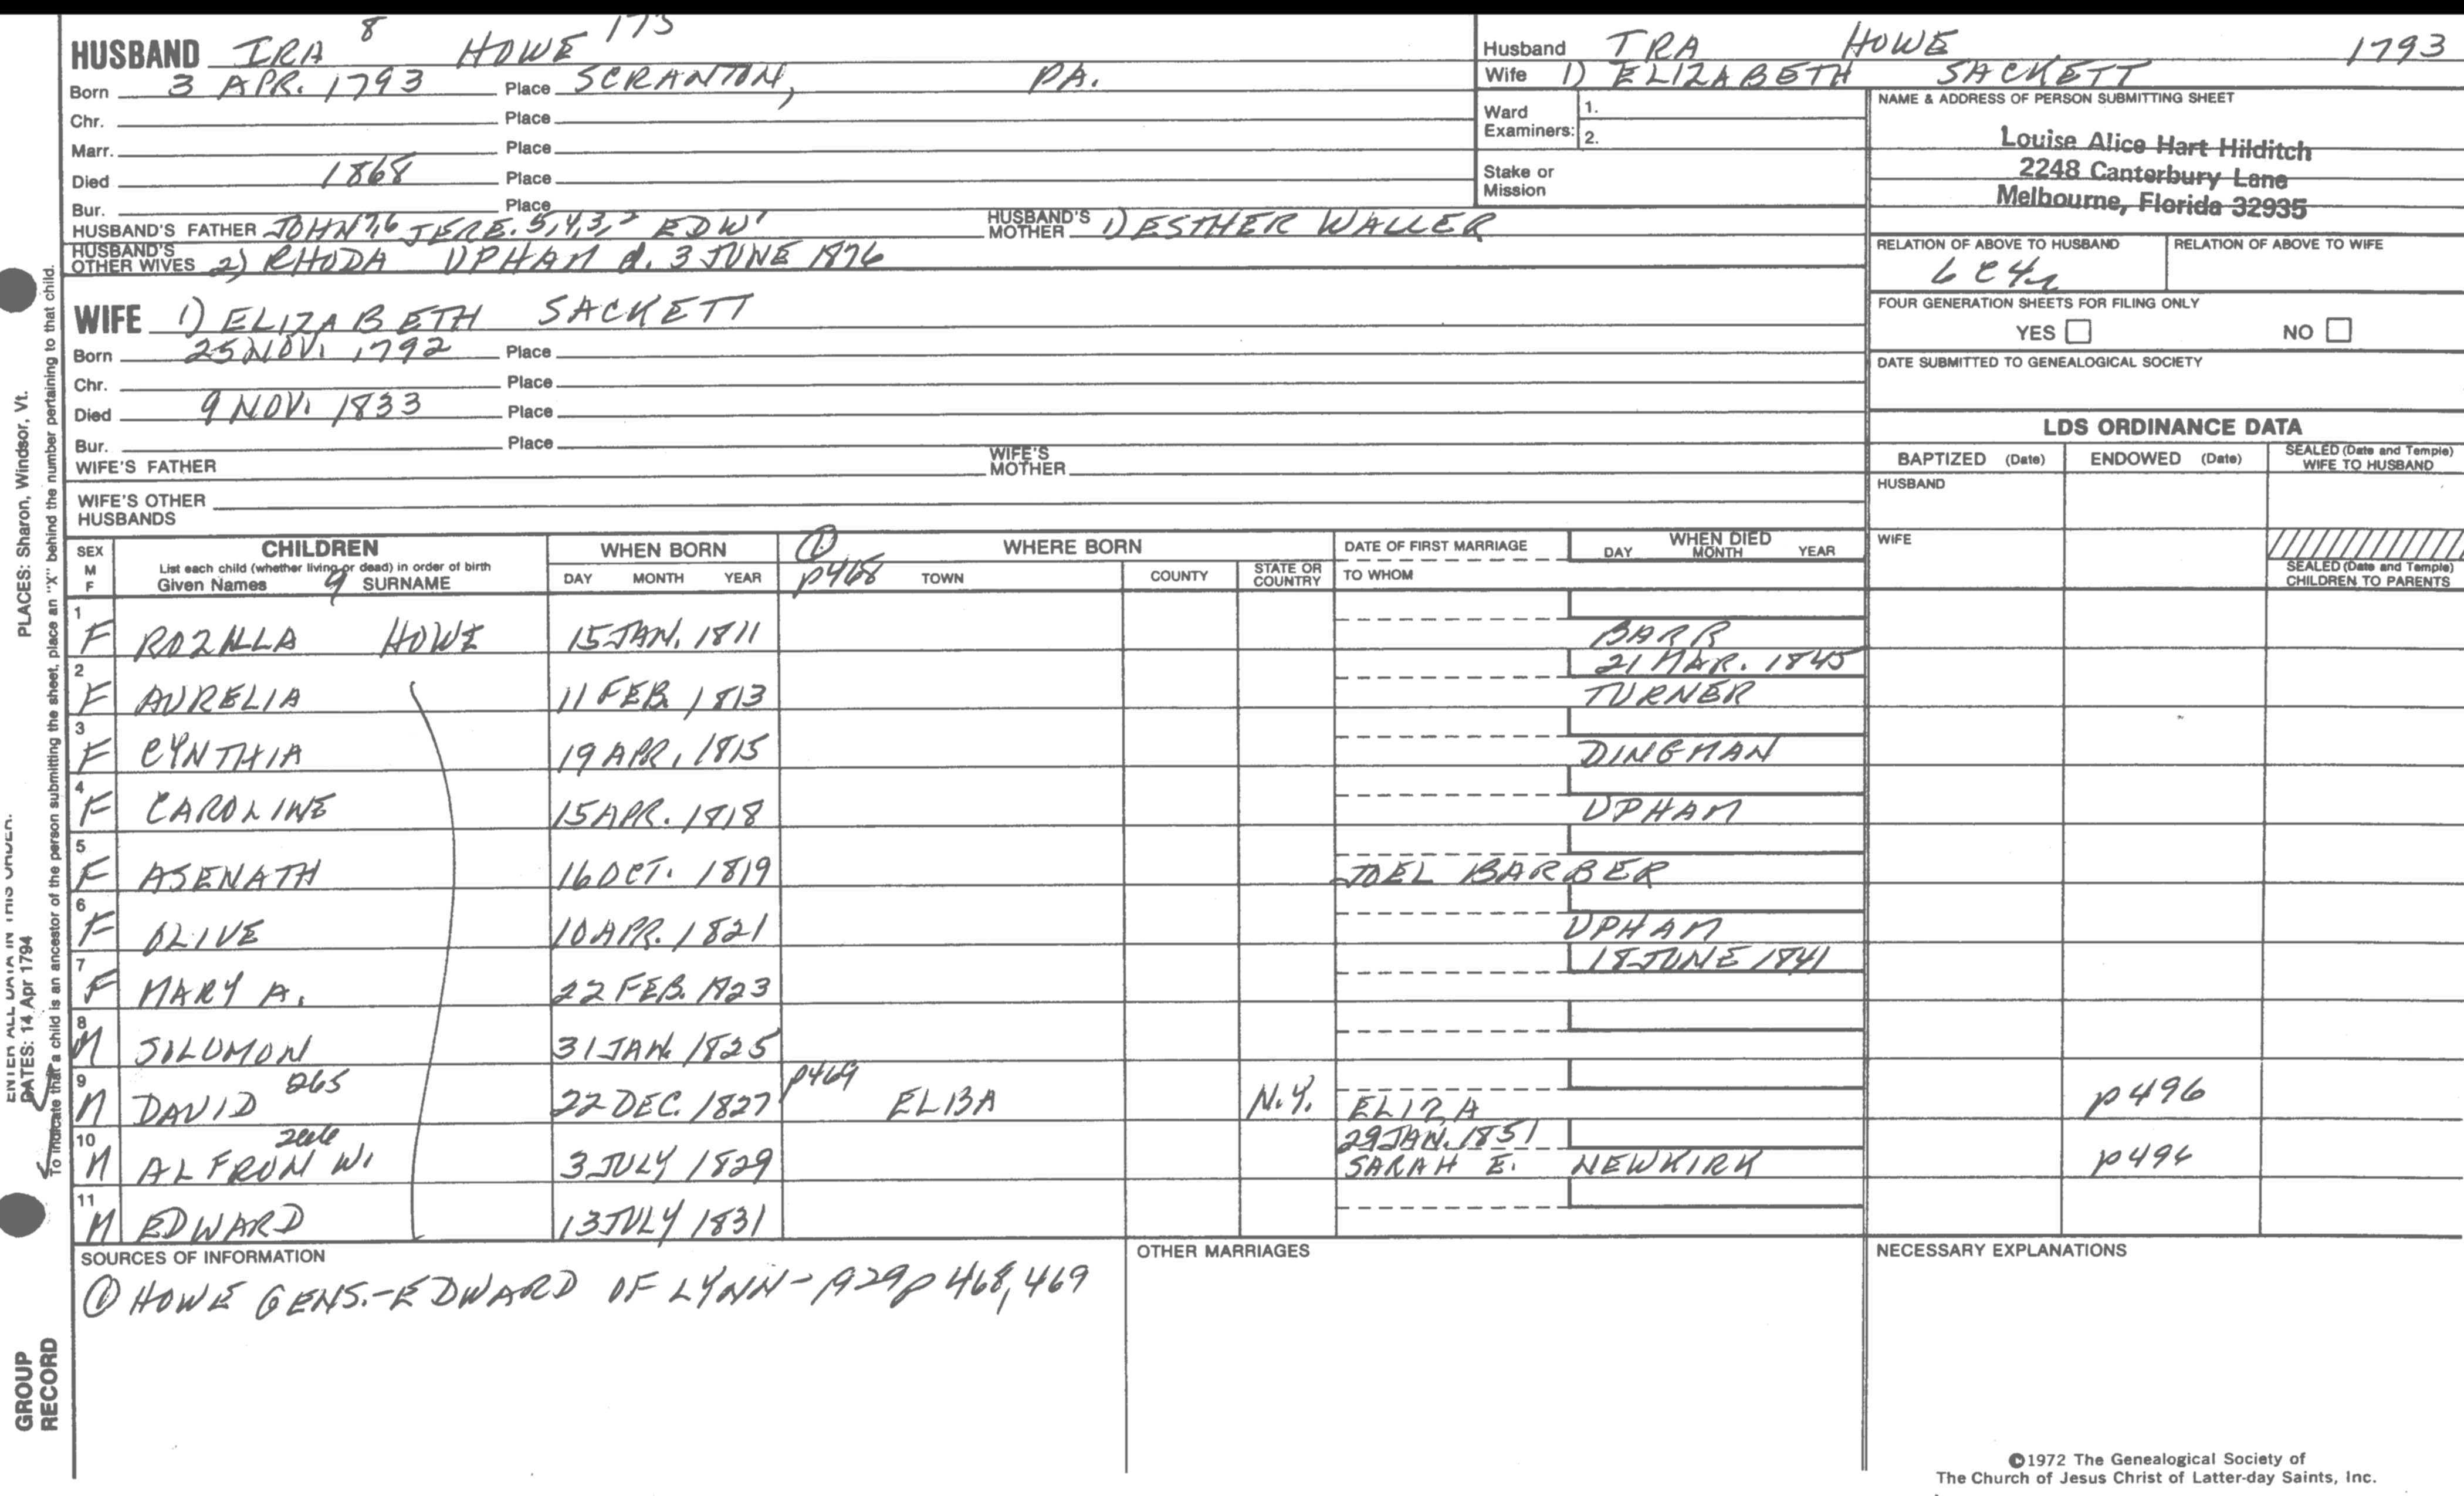 HUSBAND IRA 8 HOWE 173
Born 3 APR. 1793 Place SCRANTON, PA.
Chr. Place
Marr. Place
Died 1868 Place
Bur. Place
HUSBAND'S FATHER JOHN 7,6 JERE. 5,4,3,2 EDW 1 HUSBAND'S MOTHER 1) ESTHER WALLER
HUSBAND'S OTHER WIVES 2) RHODA UPHAM d. 3 JUNE 1876
WIFE 1) ELIZABETH SACKETT
Born 25 NOV. 1792 Place
Chr. Place
Died 9 NOV. 1833 Place
Bur. Place
WIFE'S FATHER WIFE'S MOTHER
WIFE'S OTHER HUSBANDS
Husband IRA HOWE 1793
Wife 1) ELIZABETH SACKETT
Ward Examiners: 1.
2.
Stake or Mission
NAME & ADDRESS OF PERSON SUBMITTING SHEET
Louise Alice Hart Hilditch
2248 Canterbury Lane
Melbourne, Florida 32935
RELATION OF ABOVE TO HUSBAND RELATION OF ABOVE TO WIFE
6 C 4 R
FOUR GENERATION SHEETS FOR FILING ONLY
YES NO
DATE SUBMITTED TO GENEALOGICAL SOCIETY
LDS ORDINANCE DATA
BAPTIZED (Date) ENDOWED (Date) SEALED (Date and Temple) WIFE TO HUSBAND
HUSBAND
WIFE
SEALED (Date and Temple) CHILDREN TO PARENTS
SEX M F CHILDREN WHEN BORN ① WHERE BORN DATE OF FIRST MARRIAGE WHEN DIED
List each child (whether living or dead) in order of birth
Given Names 9 SURNAME DAY MONTH YEAR p468 TOWN COUNTY STATE OR COUNTRY TO WHOM DAY MONTH YEAR
1 F ROZILLA HOWE 15 JAN. 1811 BARR
21 MAR. 1845
2 F AURELIA 11 FEB. 1813 TURNER
3 F CYNTHIA 19 APR. 1815 DINGMAN
4 F CAROLINE 15 APR. 1818 UPHAM
5 F ASENATH 16 OCT. 1819 JOEL BARBER
6 F OLIVE 10 APR. 1821 UPHAM
18 JUNE 1841
7 F MARY A. 22 FEB. 1823
8 M SOLOMON 31 JAN. 1825
9 M DAVID 265 22 DEC. 1827 p469 ELBA N.Y. ELIZA p496
29 JAN. 1851
10 M ALFRON W. 266 3 JULY 1829 SARAH E. NEWKIRK p496
11 M EDWARD 13 JULY 1831
SOURCES OF INFORMATION OTHER MARRIAGES NECESSARY EXPLANATIONS
① HOWE GENS.-EDWARD OF LYNN-1929 p 468, 469
©1972 The Genealogical Society of
The Church of Jesus Christ of Latter-day Saints, Inc.
PLACES: Sharon, Windsor, Vt.
ENTER ALL DATA IN THIS ORDER:
DATES: 14 Apr 1794
To indicate that a child is an ancestor of the person submitting the sheet, place an "X" behind the number pertaining to that child.
GROUP
RECORD